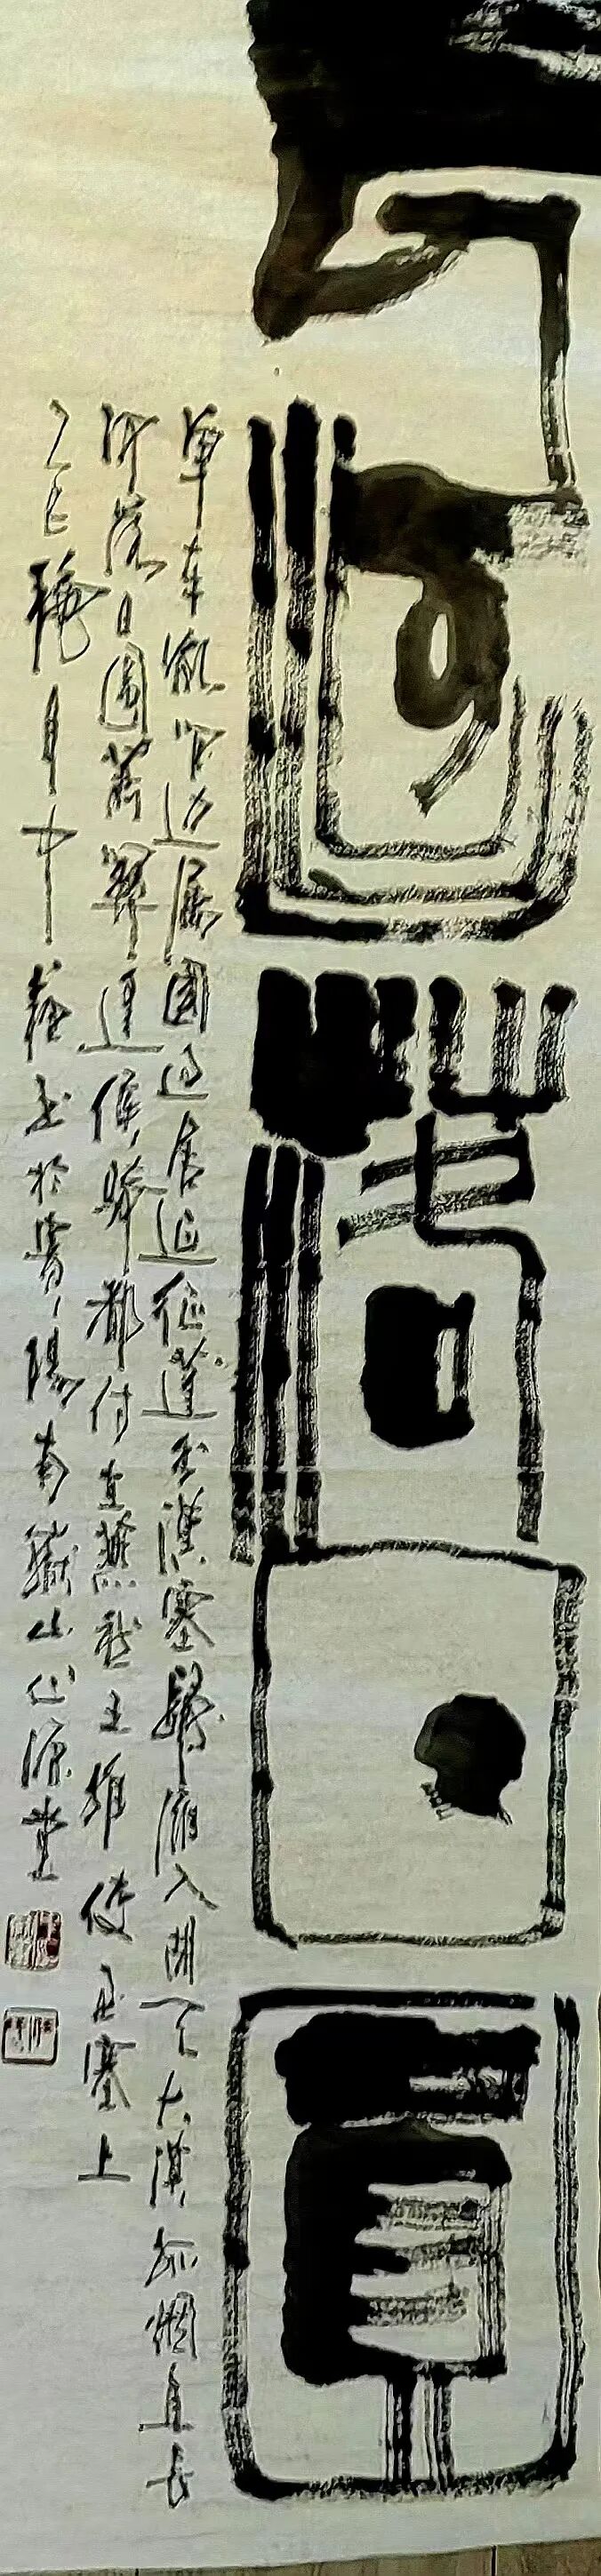 長河落日圓
單車欲問邊屬國過居延征蓬出漢塞歸雁入胡天大漠孤煙直長
河落日圓蕭關逢候騎都在燕然王維使至塞上
乙巳月中書於貴陽南嶽山仙源堂